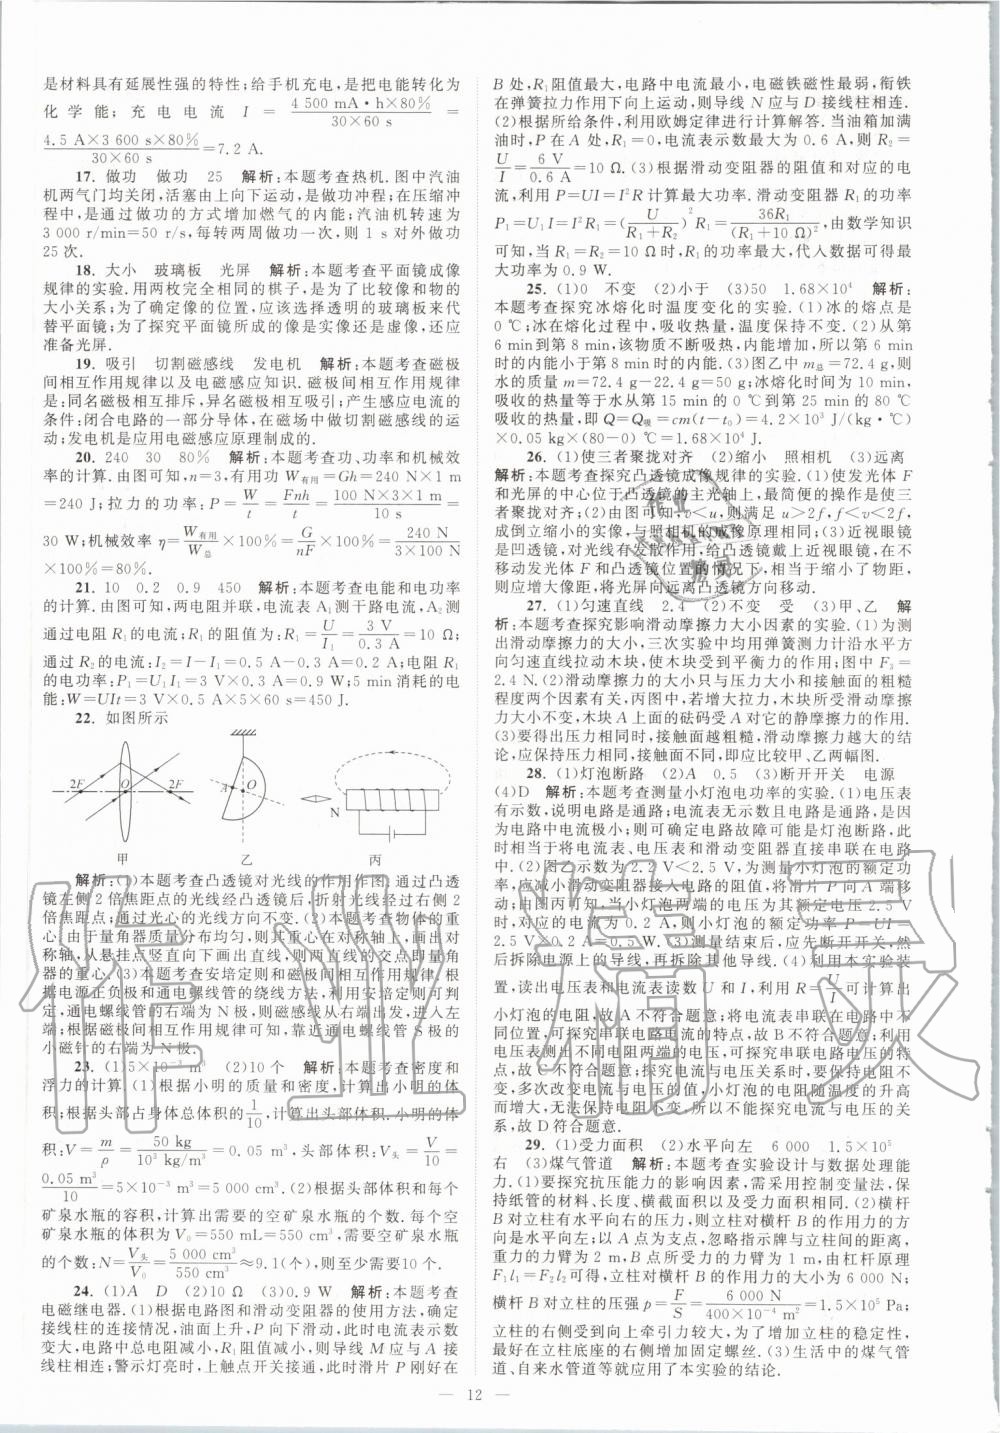 是材料具有延展性强的特性;给手机充电,是把电能转化为
化学能;充电电流 I = 4 500 mA·h×80% / 30×60 s =
4.5 A×3 600 s×80% / 30×60 s =7.2 A.
17. 做功 做功 25 解析:本题考查热机.图中汽油
机两气门均关闭,活塞由上向下运动,是做功冲程;在压缩冲
程中,是通过做功的方式增加燃气的内能;汽油机转速为
3 000 r/min=50 r/s,每转两周做功一次,则 1 s 对外做功
25 次.
18. 大小 玻璃板 光屏 解析:本题考查平面镜成像
规律的实验.用两枚完全相同的棋子,是为了比较像和物的
大小关系;为了确定像的位置,应该选择透明的玻璃板来代
替平面镜;为了探究平面镜所成的像是实像还是虚像,还应
准备光屏.
19. 吸引 切割磁感线 发电机 解析:本题考查磁极
间相互作用规律以及电磁感应知识.磁极间相互作用规律
是:同名磁极相互排斥,异名磁极相互吸引;产生感应电流的
条件:闭合电路的一部分导体,在磁场中做切割磁感线的运
动;发电机是应用电磁感应原理制成的.
20. 240 30 80% 解析:本题考查功、功率和机械效
率的计算.由图可知,n=3,有用功 W有用=Gh=240 N×1 m
=240 J;拉力的功率:P=W/t=Fnh/t=100 N×3×1 m / 10 s=
30 W;机械效率 η=W有用/W总×100%=G/nF×100%=240 N / 3×100 N
×100%=80%.
21. 10 0.2 0.9 450 解析:本题考查电能和电功率
的计算.由图可知,两电阻并联,电流表 A₁ 测干路电流,A₂ 测
通过电阻 R₁ 的电流;R₁ 的阻值为:R₁=U/I₁=3 V/0.3 A=10 Ω;
通过 R₂ 的电流:I₂=I-I₁=0.5 A-0.3 A=0.2 A;电阻 R₁
的电功率:P₁=U₁I₁=3 V×0.3 A=0.9 W;5 min 消耗的电
能:W=UIt=3 V×0.5 A×5×60 s=450 J.
22. 如图所示
2F O 2F
A O
N
甲 乙 丙
解析:(1)本题考查凸透镜对光线的作用作图,通过凸透
镜左侧 2 倍焦距点的光线经凸透镜后,折射光线经过右侧 2
倍焦距点;通过光心的光线方向不变.(2)本题考查物体的重
心.由于量角器质量分布均匀,则其重心在对称轴上,画出对
称轴,从悬挂点竖直向下画出直线,则两直线的交点即量角
器的重心.(3)本题考查安培定则和磁极间相互作用规律.根
据电源正负极和通电螺线管的绕线方法,利用安培定则可判
定,通电螺线管的右端为 N极,则磁感线从右端出发,进入左
端;根据磁极间相互作用规律可知,靠近通电螺线管 S 极的
小磁针的右端为 N 极.
23. (1)5×10⁻³ m³ (2)10个 解析:本题考查密度和
浮力的计算.(1)根据小明的质量和密度,计算出小明的体
积;根据头部占身体总体积的1/10,计算出头部体积.小明的体
积:V=m/ρ=50 kg / 10³ kg/m³=0.05 m³,头部体积:V头=V/10=
0.05 m³/10=5×10⁻³ m³=5 000 cm³.(2)根据头部体积和每个
矿泉水瓶的容积,计算出需要的空矿泉水瓶的个数.每个空
矿泉水瓶的体积为 V₀=550 mL=550 cm³,需空矿泉水瓶
的个数:N=V头/V₀=5 000 cm³/550 cm³≈9.1(个),则至少需要10 个.
24. (1)A D (2)10 Ω (3)0.9 W 解析:本题考查
电磁继电器.(1)根据电路图和滑动变阻器的使用方法,确定
接线柱的连接情况,油面上升,P 向下滑动,此时电流表示数
变大,电路中总电阻减小,R₁ 阻值减小,则导线 M 应与 A 接
线柱相连;警示灯亮时,上触点开关接通,此时滑片 P 刚好在
B 处,R₁ 阻值最大,电路中电流最小,电磁铁磁性最弱,衔铁
在弹簧拉力作用下向上运动,则导线 N 应与 D 接线柱相连.
(2)根据所给条件,利用欧姆定律进行计算解答.当油箱加满
油时,P 在 A 处,R₁ 为零,电流表示数最大为 0.6 A,则 R₂=
U/I=6 V/0.6 A=10 Ω.(3)根据滑动变阻器的阻值和对应的电
流,利用 P=UI=I²R 计算最大功率.滑动变阻器 R₁ 的功率
P₁=U₁I=I²R₁=(U/R₁+R₂)²R₁=36R₁/(R₁+10 Ω)²,由数学知识
可知,当 R₁=R₂=10 Ω时,电功率最大,代入数据可得最
大功率为 0.9 W.
25. (1)0 不变 (2)小于 (3)50 1.68×10⁴ 解析:
本题考查探究冰熔化时温度变化的实验.(1)冰的熔点是
0 ℃;冰在熔化过程中,吸收热量,温度保持不变.(2)从第
6 min到第 8 min,该物质不断吸热,内能增加,所以第 6 min
时的内能小于第 8 min 时的内能.(3)图乙中 m总=72.4 g,则
水的质量 m=72.4 g-22.4 g=50 g;冰熔化时间为 10 min,
吸收的热量等于水从第 15 min 的 0 ℃到第 25 min 的 80 ℃
吸收的热量,即 Q=Q吸=cm(t-t₀)=4.2×10³ J/(kg·℃)
×0.05 kg×(80-0) ℃=1.68×10⁴ J.
26. (1)使三者聚拢对齐 (2)缩小 照相机 (3)远离
解析:本题考查探究凸透镜成像规律的实验.(1)使发光体 F
和光屏的中心位于凸透镜的主光轴上,最简便的操作是使三
者聚拢对齐;(2)由图可知,v<u,则满足 u>2f,f<v<2f,
成倒立缩小的实像,与照相机的成像原理相同;(3)近视眼镜
是凹透镜,对光线有发散作用,给凸透镜戴上近视眼镜,在不
移动发光体 F 和凸透镜位置的情况下,相当于缩小了物距,
则应增大像距,将光屏向远离凸透镜方向移动.
27. (1)匀速直线 2.4 (2)不变 受 (3)甲、乙 解
析:本题考查探究影响滑动摩擦力大小因素的实验.(1)为测
出滑动摩擦力的大小,三次实验中均用弹簧测力计沿水平方
向匀速直线拉动木块,使木块受到平衡力的作用;图丙中 F₃=
2.4 N.(2)滑动摩擦力的大小只与压力大小和接触面的粗糙
程度两个因素有关,丙图中,若增大拉力,木块所受滑动摩擦
力大小不变,木块 A 上面的砝码受 A 对它的静摩擦力的作用.
(3)要得出压力相同时,接触面越粗糙,滑动摩擦力越大的结
论,应保持压力相同,接触面不同,即应比较甲、乙两幅图.
28. (1)灯泡断路 (2)A 0.5 (3)断开开关 电源
(4)D 解析:本题考查测量小灯泡电功率的实验.(1)电压表
有示数,说明电路是通路;电流表无示数且电路是通路,是因
为电路中电流极小;则可确定电路故障可能是灯泡断路,此
时相当于将电流表、电压表和滑动变阻器直接串联在电路
中.(2)图乙示数为 2.2 V<2.5 V,为测量小灯泡的额定功
率,应减小滑动变阻器接入电路的阻值,将滑片 P 向 A 端移
动;由图丙可知,当小灯泡两端的电压为其额定电压 2.5 V
时,对应的电流为 0.2 A,则小灯泡的额定功率 P=UI=
2.5 V×0.2 A=0.5 W.(3)测量结束后,应先断开开关,然
后拆除电源上的导线,再拆除其他导线.(4)利用本实验装
置,读出电压表和电流表读数 U 和 I,利用 R=U/I可计算出
小灯泡的电阻,故 A 不符合题意;将电流表串联在电路中不
同位置,可探究串联电路电流的特点,故 B 不符合题意;利用
电压表测出不同电阻两端的电压,可探究串联电路电压的特
点,故 C 不符合题意;探究电流与电压关系要保证电阻不
变,多次改变电流与电压,小灯泡的电阻随温度的升高
而增大,无法保持电阻不变,则不能探究电流与电压的关
系,故 D 符合题意.
29. (1)受力面积 (2)水平向左 6 000 1.5×10⁵
右 (3)煤气管道 解析:本题考查实验设计与数据处理能
力.(1)要探究抗压能力的影响因素,需采用控制变量法,保
持纸管的材料、长度、横截面积以及受力面积不变.(2)横杆
B 对立柱有水平向右的压力,则立柱对横杆 B 的作用力水平
向左;以 A 点为支点,忽略指示牌与立柱间的距离,
重力的力臂为 2 m,B 点所受力的力臂为 1 m,由杠杆原理
F₁l₁=F₂l₂可得,立柱对横杆 B 的作用力大小为 6 000 N;
横杆 B 对立柱的压强 p=F/S=6 000 N / 400×10⁻⁴ m²=1.5×10⁵ Pa;
立柱的右侧受到向上牵引力较大,为了增加立柱的稳定性,
最好在立柱底座的右侧增加固定螺丝.(3)生活中的煤气管
道、自来水管道等就应用了本实验的结论.
— 12 —
作业精灵